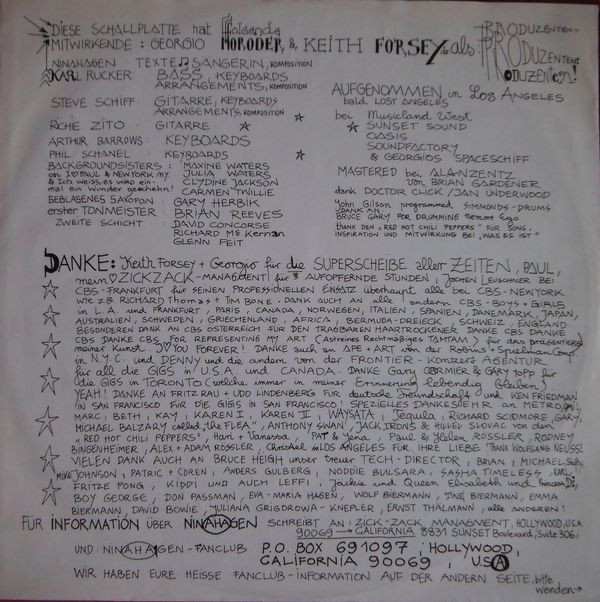 DIESE SCHALLPLATTE hat folgende PRODUZENTEN
MITWIRKENDE : GEORGIO MORODER, & KEITH FORSEY als : PRODUZENTEN
PRODUZENTEN!
NINAHAGEN TEXTE SÄNGERIN, KOMPOSITION
KARL RUCKER BASS, KEYBOARDS
ARRANGEMENTS, KOMPOSITION
STEVE SCHIFF GITARRE, KEYBOARDS
ARRANGEMENTS, KOMPOSITION
RICHE ZITO GITARRE
ARTHUR BARROWS KEYBOARDS
PHIL SCHANEL KEYBOARDS
BACKGROUNDSISTERS : MAXINE WATERS
JULIA WATERS
& Ich weiss, es wird ein- CLYDINE JACKSON
mal ein Wunder geschehn! CARMEN TWILLIE
BEBLASENES SAXOFON : GARY HERBIK
erster TONMEISTER : BRIAN REEVES
ZWEITE SCHICHT : DAVID CONCORSE
RICHARD McKernan
GLENN FEIT
AUFGENOMMEN in LOS ANGELES
bald LOST ANGELES
bei Musicland West
SUNSET SOUND
OASIS
SOUNDFACTORY
& GEORGIOS SPACESCHIFF
MASTERED bei ALLANZENTZ
von BRIAN GARDENER
dank DOCTOR CLICK / JAN UNDERWOOD
John Gilson programmed SIMMONDS-DRUMS
BRUCE GARY FOR DRUMMING Zomore Ego
thanx DEN "RED HOT CHILI PEPPERS" FÜR SONG,
INSPIRATION UND MITWIRKUNG BEI "WAS ES IST"
DANKE: Keith FORSEY + Georgio für die SUPERSCHEIBE aller ZEITEN, PAUL,
mein ZICKZACK-MANAGMENT für AUFOPFERNDE STUNDEN, JOCHEN LEUSCHNER BEI
CBS-FRANKFURT FÜR SEINEN PROFESSIONELLEN EINSATZ überhaupt alle bei CBS-NEWYORK
wie z.B. RICHARD Thomas + TIM BONE. DANK AUCH AN alle andern CBS-BOYS + GIRLS
in L.A. und FRANKFURT, PARIS, CANADA, NORWEGEN, ITALIEN, SPANIEN, DÄNEMARK, JAPAN,
AUSTRALIEN, SCHWEDEN, GRIECHENLAND, AFRICA, BERMUDA-DREIECK, SCHWEIZ, ENGLAND
BESONDEREN DANK AN CBS ÖSTERREICH FÜR DEN TRAGBAREN HAARTROCKENER DANKE CBS DANKE
CBS DANKE CBS FOR REPRESENTING MY ART (Astreines Rechtmäßiges TAMTAM) für das präsentieren
meiner Kunst I♡YOU FOREVER! DANKE auch an APE + ART von der Robins + Spielman Comp.
in N.Y.C. und DENNY und die andern von der FRONTIER-KONZERT AGENTUR
für all die GIGS in U.S.A. und CANADA. DANKE Gary CORMIER & GARY TOPP für
die GIGS in TORONTO (welche immer in meiner Erinnerung lebendig bleiben)
YEAH! DANKE AN FRITZ RAU + UDO LINDENBERG FÜR deutsche Freundschaft und KEN FRIEDMAN
IN SAN FRANCISCO FÜR DIE GIGS IN SAN FRANCISCO! SPEZIELLES DANKESEHR an METRO,
MARC, BETH, KAY, KAREN I, KAREN II, WAYSATA, Jequila, RICHARD SCIDMORE, GARY,
MICHAEL BALZARY called "the FLEA", ANTHONY SWAN, JACK IRONS & HILLEL SLOVAC von den
"RED HOT CHILI PEPPERS", Hari + Vanessa, PAT & Yena, Paul & Helen RÖSSLER, RODNEY
BINGENHEIMER, ALEX + ADAM RÖSSLER, Christine in LOS ANGELES FÜR IHRE LIEBE! THANX WOLFGANG NEUSS!
VIELEN DANK AUCH AN BRUCE HEIGH unser treuer TECH-DIRECTOR, BRIAN, MICHAEL
MIKE JOHNSON, PATRIC + COREN, ANDERS GULBERG, NODDIE BULSARA, SASHA TIMELESS, URI,
FRITZE PONG, KIDDI UND AUCH LEFFI, Jackie und Queen Elisabeth und Princess Di,
BOY GEORGE, DON PASSMAN, EVA-MARIA HAGEN, WOLF BIERMANN, TINE BIERMANN, EMMA
BIERMANN, DAVID BOWIE, YULIANA GRIGOROWA-KNEPLER, ERNST THÄLMANN, alle anderen!
FÜR INFORMATION ÜBER NINAHAGEN SCHREIBT AN : ZICK-ZACK MANAGMENT, HOLLYWOOD, U.S.A.
90069 → CALIFORNIA 8831 SUNSET Boulevard, Suite 306;
UND : NINAHAGEN-FANCLUB P.O. BOX 691097, HOLLYWOOD,
CALIFORNIA 90069, USA
WIR HABEN EURE HEISSE FANCLUB-INFORMATION AUF DER ANDERN SEITE, bitte
wenden→